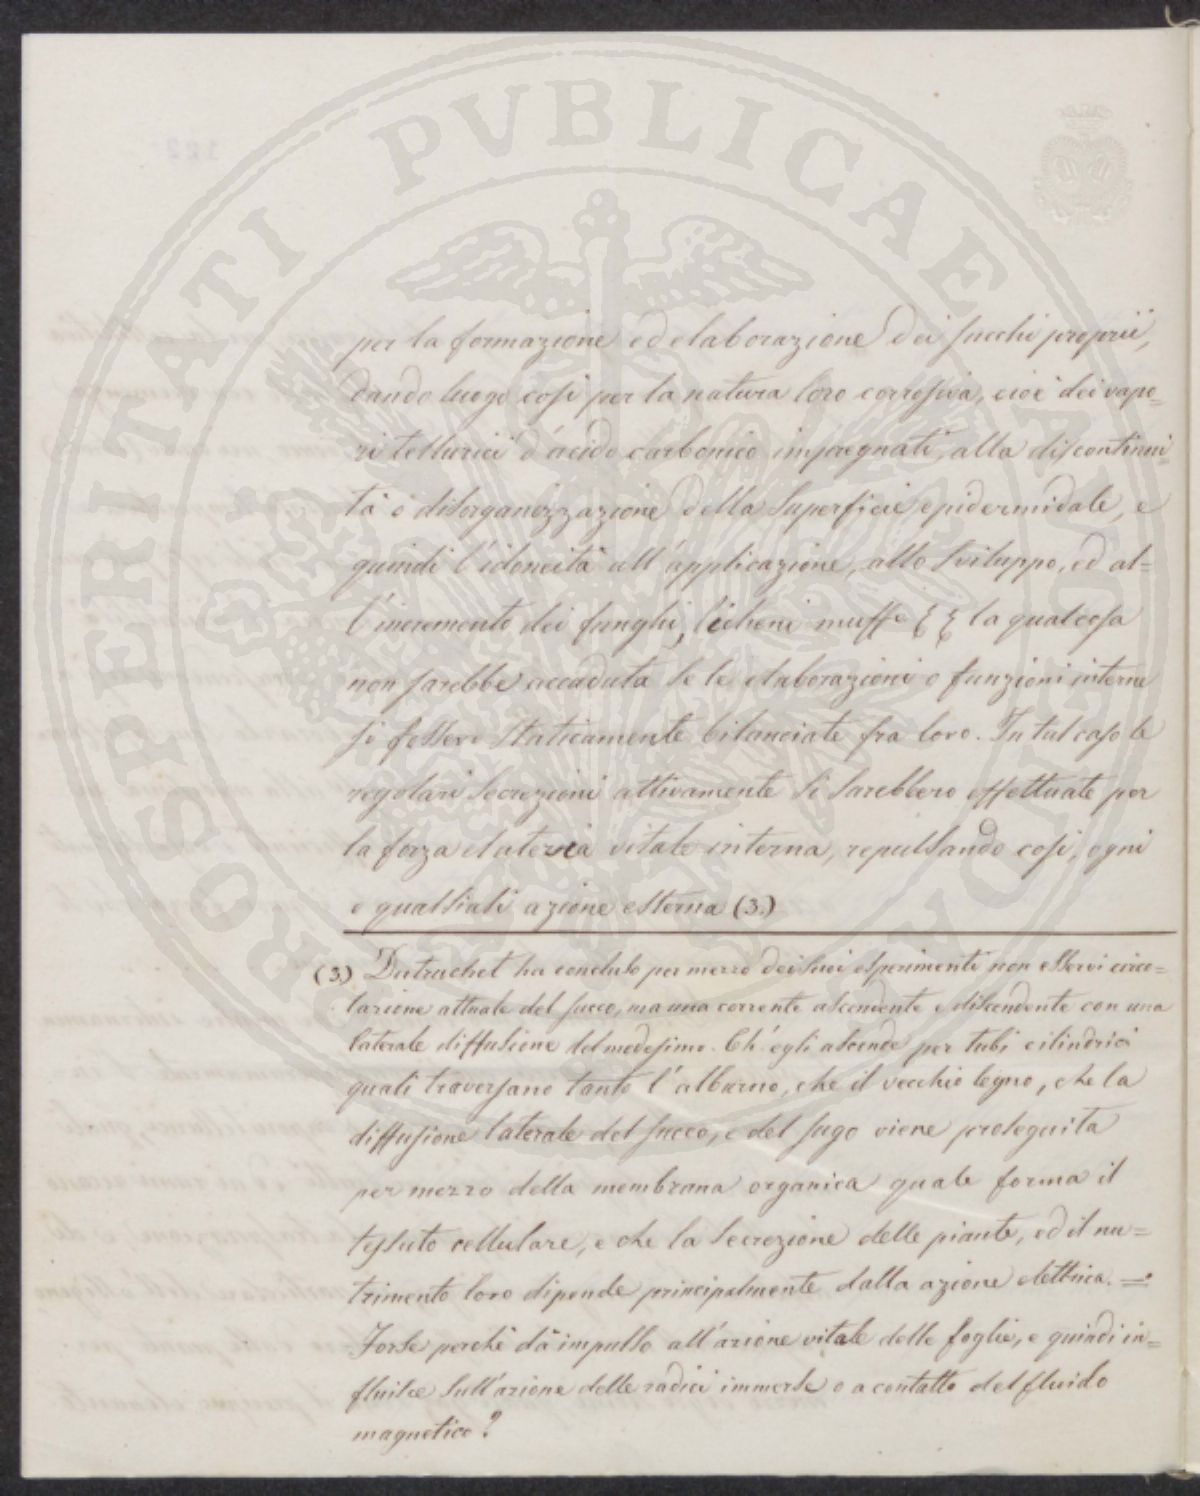 PROSPERITATI PUBLICAE AUGENDAE
per la formazione ed elaborazione dei succhi proprii,
dando luogo così per la natura loro corrosiva, cioè dei vapo=
ri tellurici d'acido carbonico impregnati, alla discontinui=
tà e disorganizzazione della superficie epidermidale, e
quindi l'idoneità all'applicazione, allo sviluppo, ed al=
l'incremento dei funghi, licheni muffe la qualcosa
non sarebbe accaduta se le elaborazioni o funzioni interne
si fossero staticamente bilanciate fra loro. In tal caso le
regolari secrezioni attivamente si sarebbero effettuate per
la forza elateria vitale interna, repulsando così, ogni
e qualsiasi azione esterna (3.)
(3.) Dutrochet ha concluso per mezzo dei suoi esperimenti non esservi circo=
lazione attuale del succo, ma una corrente ascendente e discendente con una
laterale diffusione del medesimo. Ch'egli ascende per tubi cilindrici
quali traversano tanto l'alburno, che il vecchio legno, che la
diffusione laterale del succo, e del sugo viene proseguita
per mezzo della membrana organica quale forma il
tessuto cellulare, e che la secrezione delle piante, ed il nu=
trimento loro dipende principalmente dalla azione elettrica. =
Forse perchè dà impulso all'azione vitale delle foglie, e quindi in=
fluisce sull'azione delle radici immerse o a contatto del fluido
magnetico?